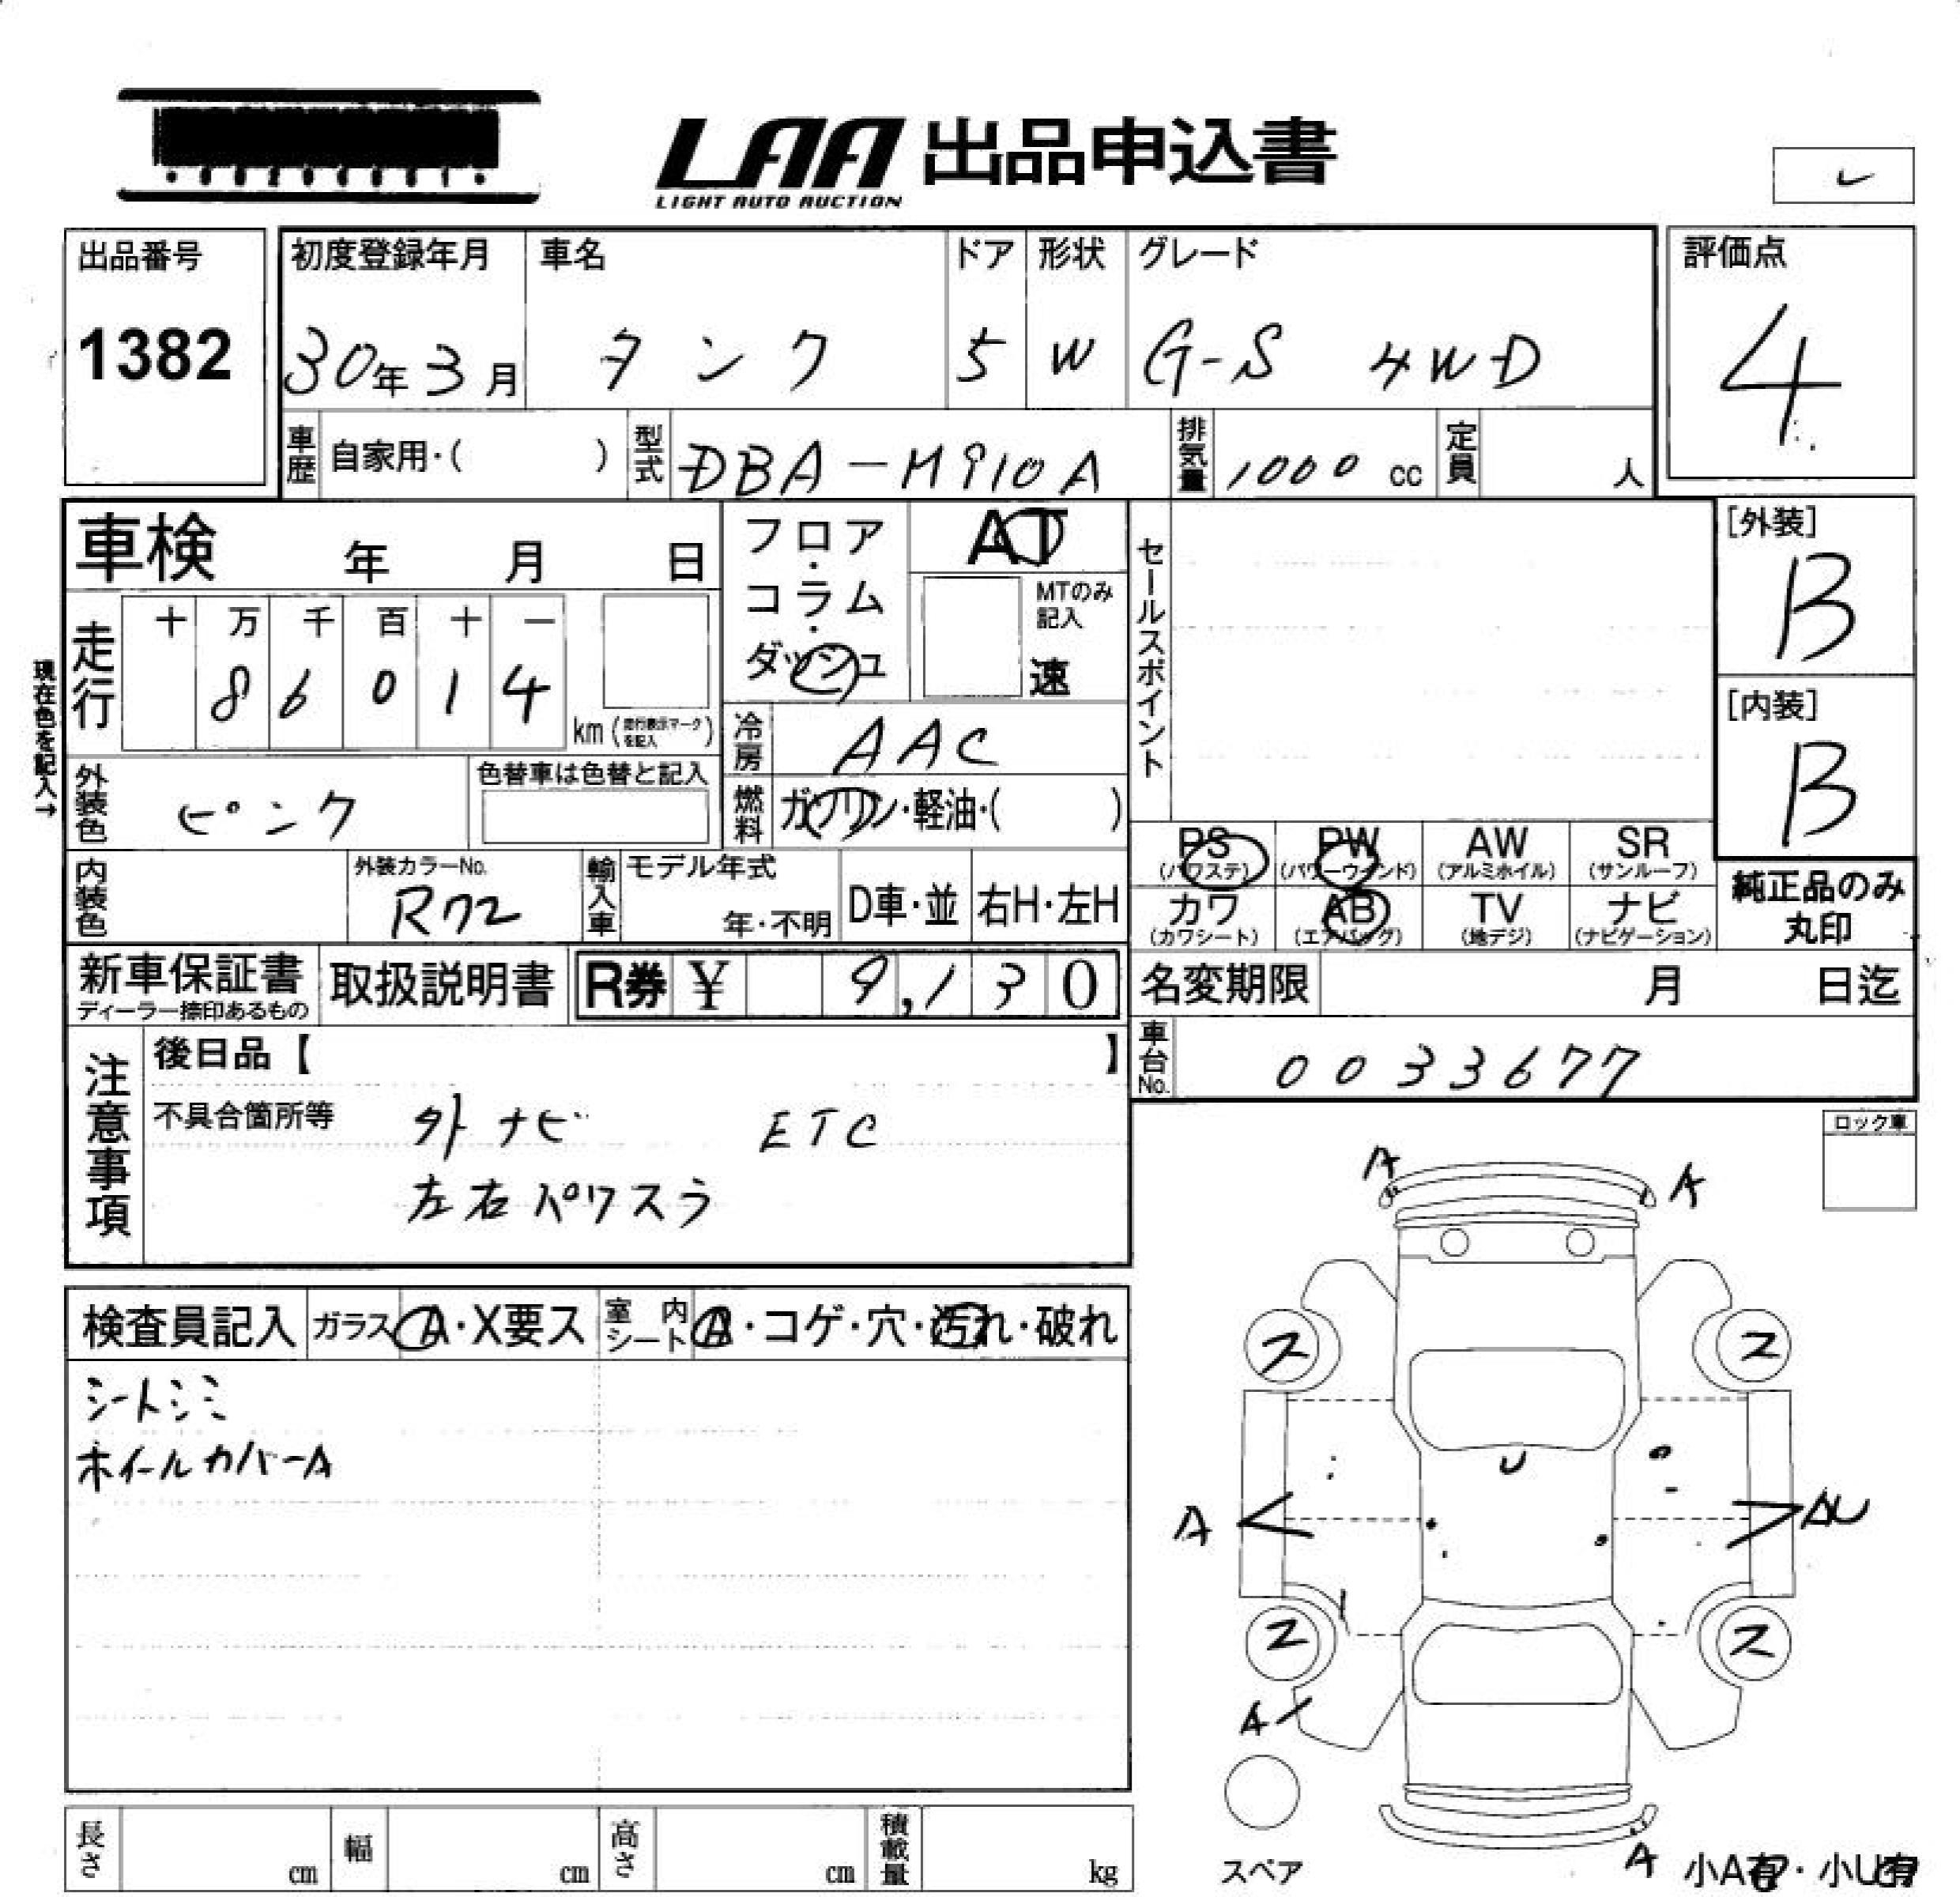 LAA 出品申込書
LIGHT AUTO AUCTION
出品番号
1382
初度登録年月
30年3月
車名
タンク
ドア
5
形状
W
グレード
G-S 4WD
評価点
4
車歴 自家用・( )
型式 DBA-M910A
排気量 1000 cc
定員 人
車検 年 月 日
フロア・コラム・ダッシュ
AT
MTのみ記入
速
セールスポイント
[外装]
B
[内装]
B
現在色を記入→
走行
十 万 千 百 十 一
8 6 0 1 4
km (走行表示マークを記入)
冷房 AAC
外装色 ピンク
色替車は色替と記入
燃料 ガソリン・軽油・( )
内装色
外装カラーNo.
R72
輸入車
モデル年式
年・不明
D車・並
右H・左H
PS (パワステ)
PW (パワーウインド)
AW (アルミホイル)
SR (サンルーフ)
カワ (カワシート)
AB (エアバッグ)
TV (地デジ)
ナビ (ナビゲーション)
純正品のみ丸印
新車保証書
ディーラー捺印あるもの
取扱説明書
R券 ¥ 9,130
名変期限 月 日迄
車台No. 0033677
注意事項
後日品【 】
不具合箇所等
外ナビ ETC
左右パワスラ
ロック車
検査員記入
ガラス A・X要ス
室内シート A・コゲ・穴・汚れ・破れ
シートシミ
ホイールカバーA
A A
ス ス
U
A AU
ス ス
A
スペア
A
小A有・小U有
長さ cm
幅 cm
高さ cm
積載量 kg